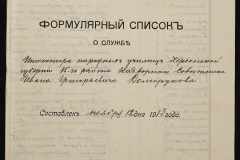 ФОРМУЛЯРНЫЙ СПИСОКЪ
О СЛУЖБѢ
Инспектора народныхъ училищъ Херсонской
губерніи района Надворнаго Совѣтника
Ивана Григорьевича
Составленъ 12 дня 191 года.